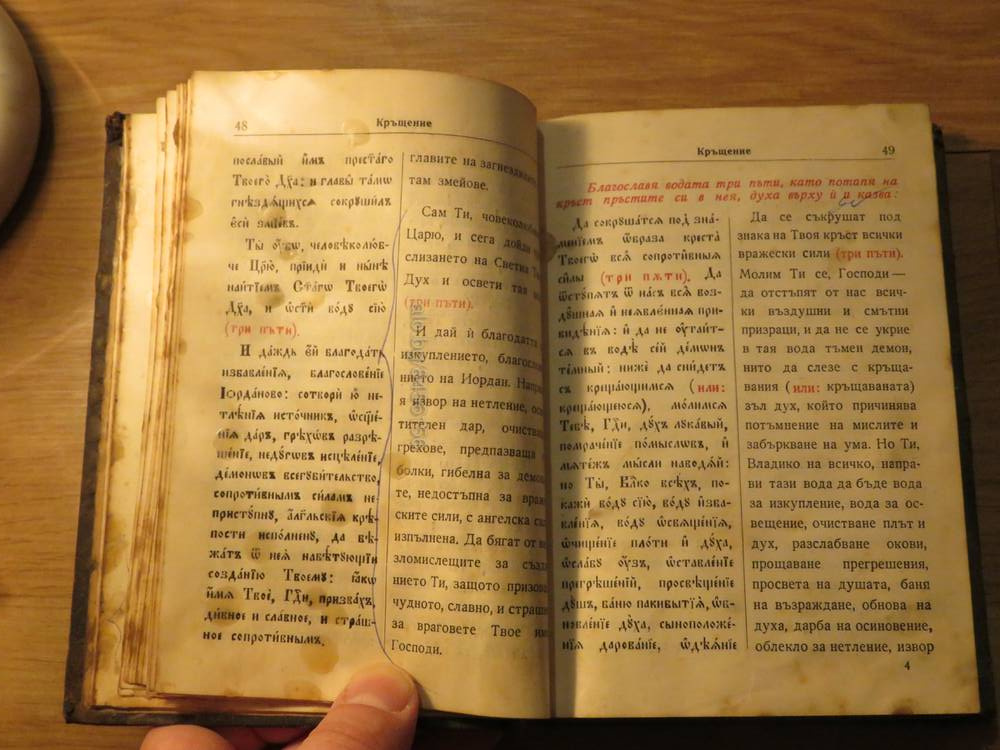 48
Кръщение
посла́вый и҆̀мъ прест҃а́го
Твоегѡ̀ Дх҃а: и главы̀ та́мѡ
гнѣздѧ́щихсѧ сокруши́лъ
є҆сѝ ѕмі́евъ.
Ты̀ ᲂу҆̀бѡ, человѣколю́б-
че Цр҃ю̀, прїидѝ и ны́нѣ
наи́тїемъ Ст҃а́гѡ Твоегѡ̀
Дх҃а, и ѡ҆ст҃ѝ во́ду сїю̀
(три пѫти).
И да́ждь є҆́й благода́ть
избавле́нїѧ, благослове́нїе
І҆ѻрда́ново: сотворѝ ю҆̀ не-
тлѣ́нїѧ исто́чникъ, ѡ҆сщ҃е́-
нїѧ да́ръ, грѣхѡ́въ разрѣ-
ше́нїе, недꙋ́гѡвъ исцѣле́нїе,
де́монѡвъ всегуби́тельство,
сопроти́внымъ си́ламъ не-
пристꙋ́пнꙋ, а҆́гг҃льскїѧ крѣ́-
пости испо́лненꙋ, да бѣ-
жа́тъ ѿ неѧ̀ навѣ́тꙋющїи
созда́нїю Твоемꙋ̀: ꙗ҆́кѡ
и҆́мѧ Твоѐ, Гдⷭ҇и, призва́хъ,
ди́вное и сла́вное, и стра́ш-
ное сопроти́внымъ.
главите на
там змейове.
Сам Ти,
Царю, и сега дойди
слизането на Светия
Дух и освети тая
(три пъти).
И дай ѝ благодатта
изкуплението,
нието на Йордан.
я извор на нетление,
тителен дар,
грехове, предпазваща
болки, гибелна за
те, недостъпна за
ските сили, с ангелска
изпълнена. Да бягат от
зломислещите за
нието Ти, защото
чудното, славно, и
за враговете Твое
Господи.
Кръщение
49
Благославя водата три пъти, като потапя на
кръст пръстите си в нея, духа върху ѝ и казва:
Да сокрꙋша́тсѧ под зна́-
менїемъ ѡ҆́браза креста̀
Твоегѡ̀ всѧ̑ сопроти́вныѧ
си́лы (три пѫти). Да
ѿстꙋ́пѧтъ ѿ на́съ всѧ̑ воз-
дꙋ́шнаѧ и неꙗвле́ннаѧ при-
видѣ́нїѧ: и да не ᲂу҆таи́т-
сѧ въ водѣ̀ се́й де́монъ
те́мный: нижѐ да сни́детъ
съ креща́ющимсѧ (или:
креща́ющеюсѧ), мо́лимсѧ
Тебѣ̀, Гдⷭ҇и, дꙋ́хъ лꙋка́вый,
помраче́нїе по́мыслѡвъ, и
мѧте́жъ мы́сли наводѧ́й:
но Ты̀, Влⷣко всѣ́хъ, по-
кажѝ во́дꙋ сїю̀, во́дꙋ и҆збав-
ле́нїѧ, во́дꙋ ѡ҆свѧще́нїѧ,
ѡ҆чище́нїе пло́ти и дꙋ́ха,
ѡ҆сла́бꙋ ᲂу҆́зъ, ѡ҆ставле́нїе
прегрѣше́нїй, просвѣще́нїе
дꙋ́шъ, ба́ню пакибытїѧ̀, ѡ҆б-
новле́нїе дꙋ́ха, сыноположе́-
нїѧ дарова́нїе, ѡ҆дѣѧ́нїе
Да се съкрушат под
знака на Твоя кръст всички
вражески сили (три пъти).
Молим Ти се, Господи —
да отстъпят от нас всич-
ки въздушни и смътни
призраци, и да не се укрие
в тая вода тъмен демон,
нито да слезе с кръща-
вания (или: кръщаваната)
зъл дух, който причинява
потъмнение на мислите и
забъркване на ума. Но Ти,
Владико на всичко, напра-
ви тази вода да бъде вода
за изкупление, вода за ос-
вещение, очистване плът и
дух, разслабване окови,
прощаване прегрешения,
просвета на душата, баня
на възраждане, обнова на
духа, дарба на осиновение,
облекло за нетление, извор
4